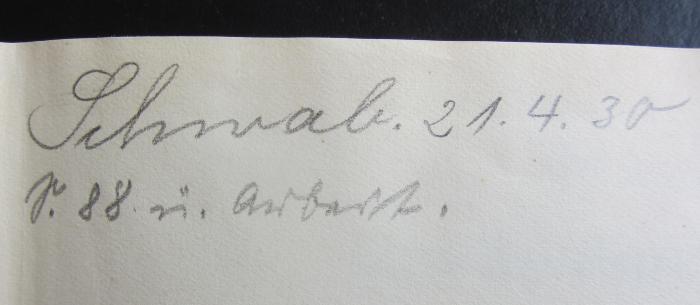 Schwab. 21. 4. 30
S. 88 u. Arbeit.